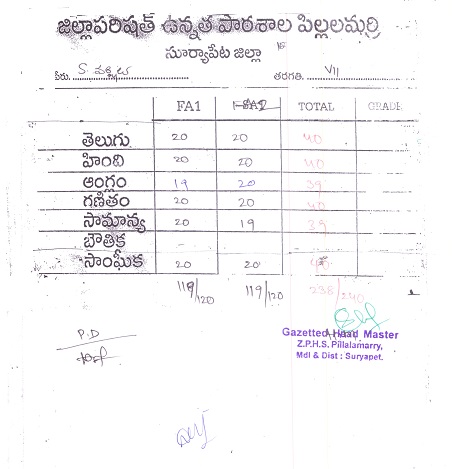 జిల్లాపరిషత్ ఉన్నత పాఠశాల పిల్లలమర్రి
సూర్యాపేట జిల్లా
పేరు. S. తరగతి. VII
FA1 FA2 TOTAL GRADE
తెలుగు 20 20 40
హింది 20 20 40
ఆంగ్లం 19 20 39
గణితం 20 20 40
సామాన్య 20 19 39
భౌతిక - -
సాంఘీక 20 20 40
119/120 119/120 238/240
P.D
Gazetted Head Master
Z.P.H.S. Pillalamarry,
Mdl & Dist : Suryapet.